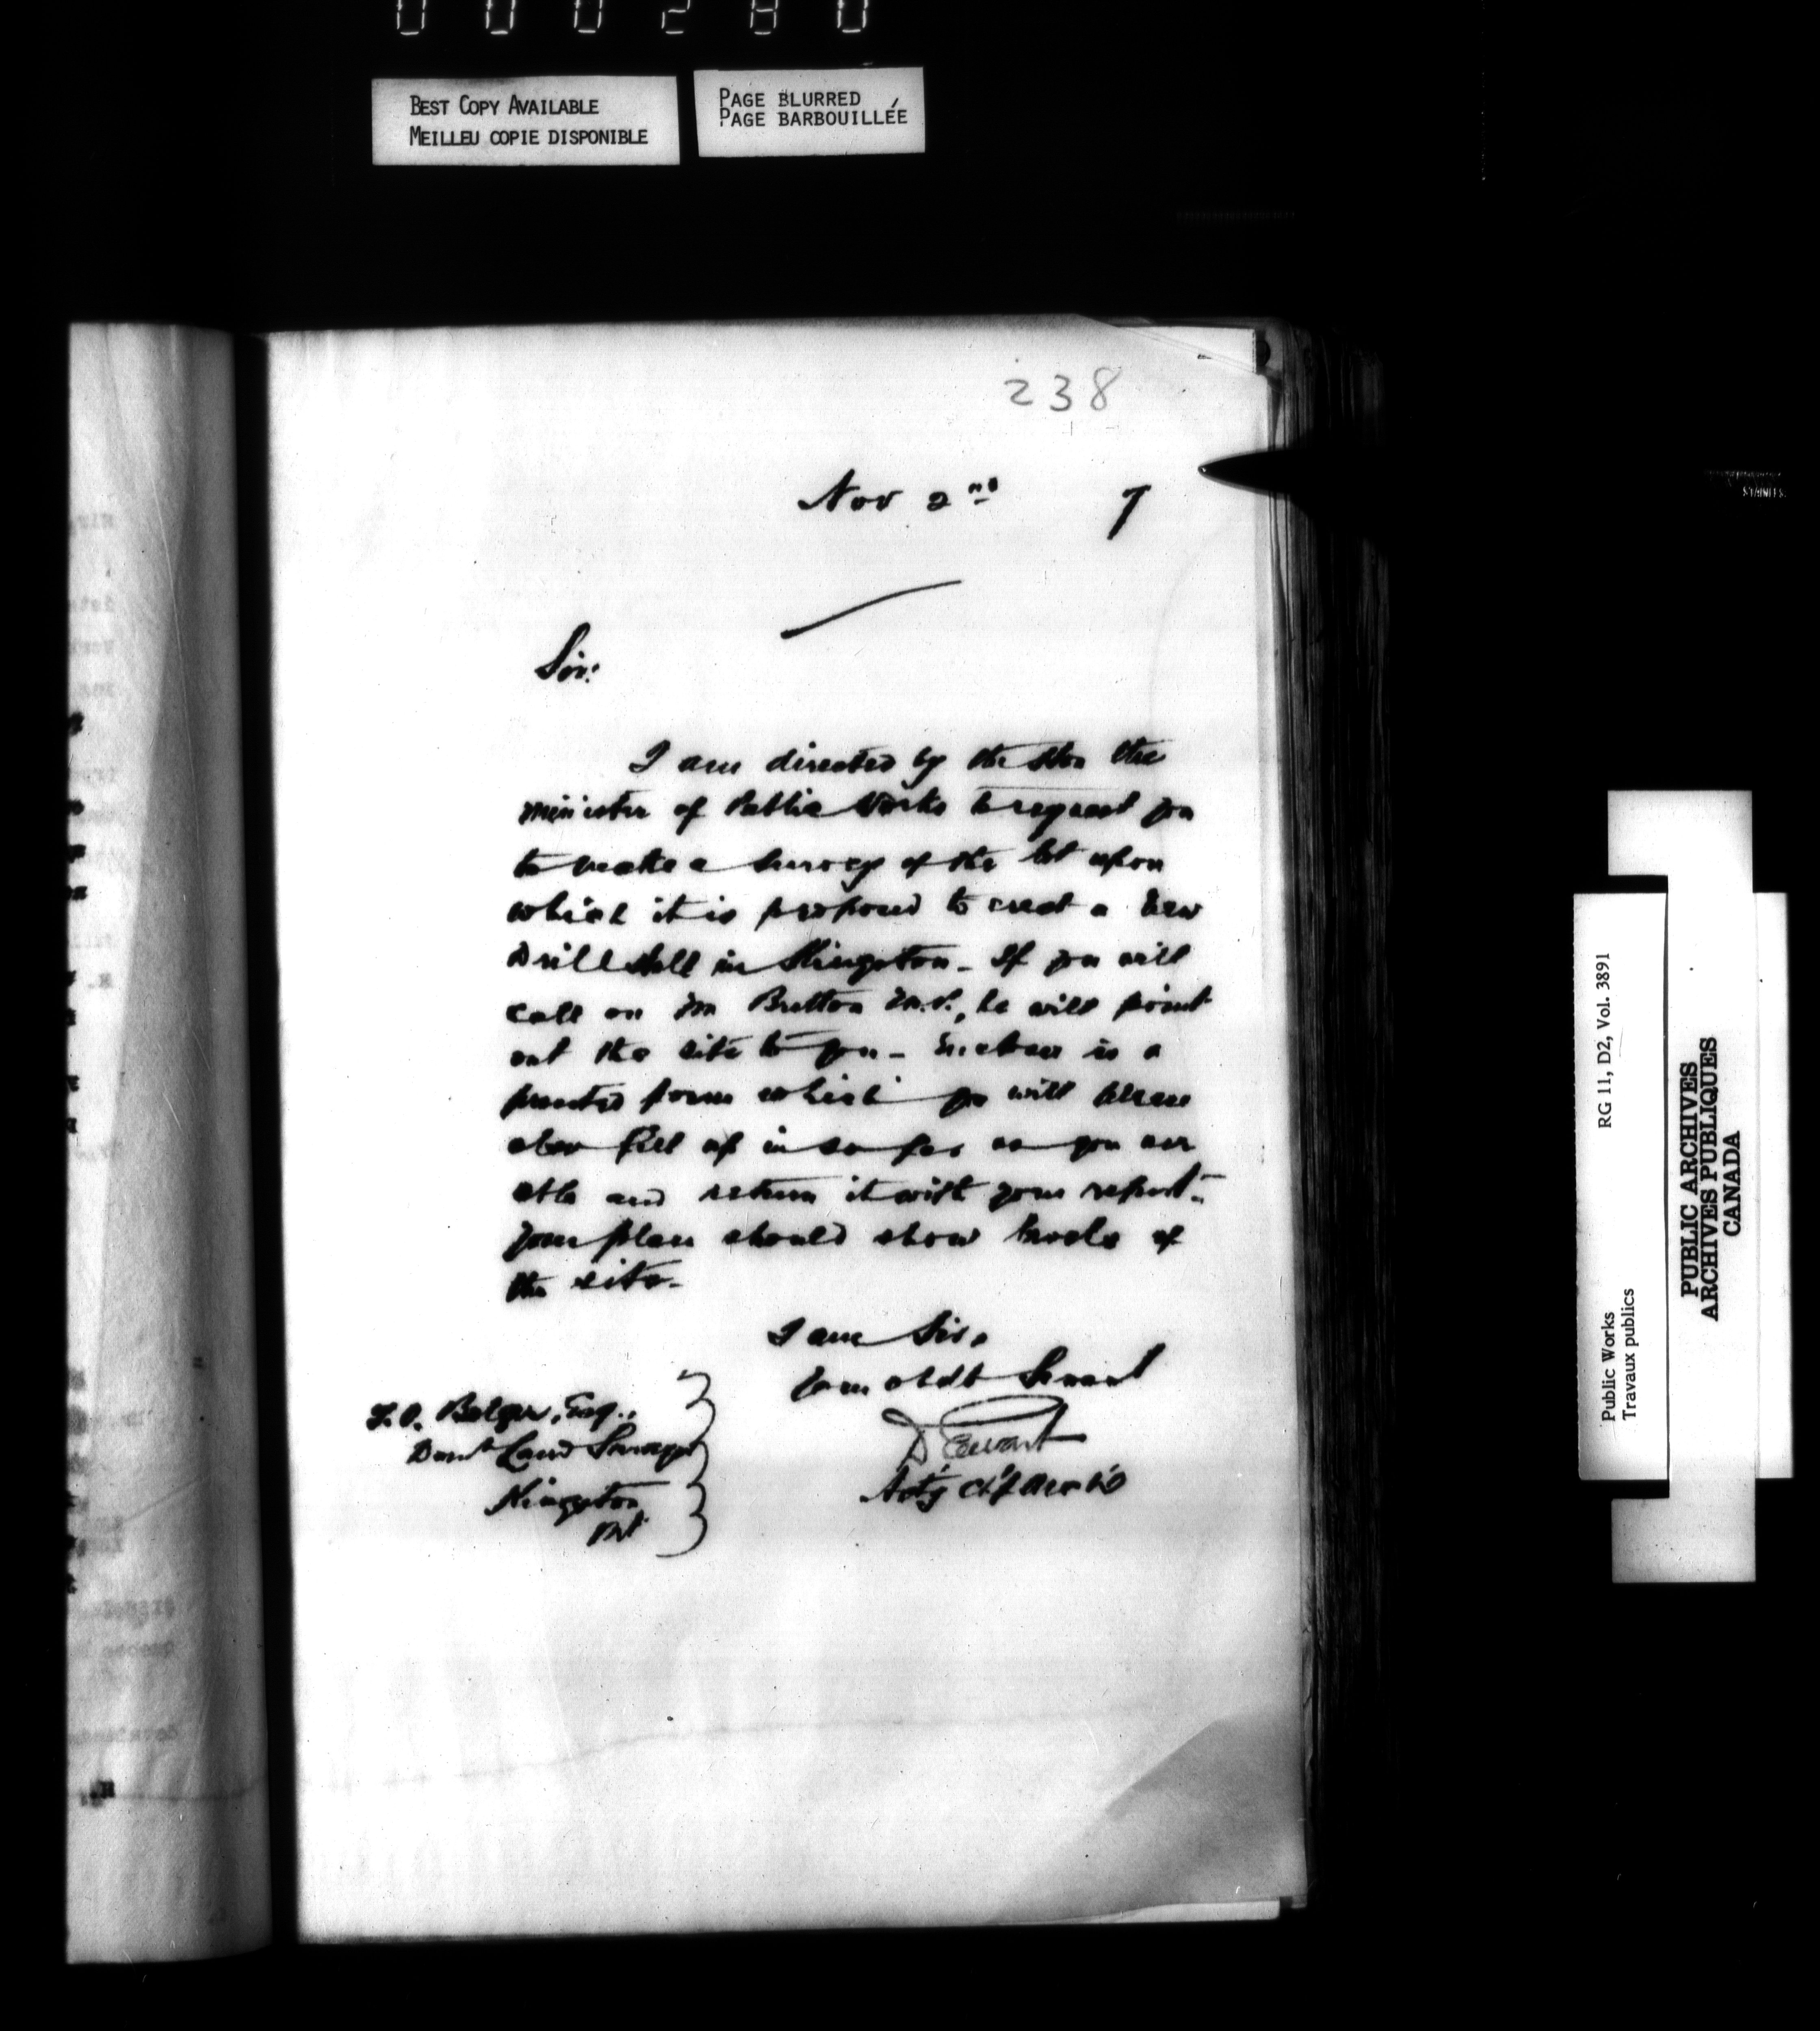 000280
BEST COPY AVAILABLE
MEILLEU COPIE DISPONIBLE
PAGE BLURRED
PAGE BARBOUILLÉE
238
Nov 2nd 7
Sir:
I am directed by the Hon the
Minister of Public Works to request you
to make a survey of the lot upon
which it is proposed to erect a New
Drill Hall in Kingston. If you will
call on Mr Britton M.P., he will point
out the site to you. Enclosed is a
printed form which you will please
also fill up in so far as you are
able and return it with your report.
Your plan should show levels of
the site.
I am Sir,
Your obdt Servant
D Ewart
Act'g Ch'f Arch't
T. O. Bolger, Esq.,
Dom't Land Surveyor
Kingston
Ont
RG 11, D2, Vol. 3891
Public Works
Travaux publics
PUBLIC ARCHIVES
ARCHIVES PUBLIQUES
CANADA